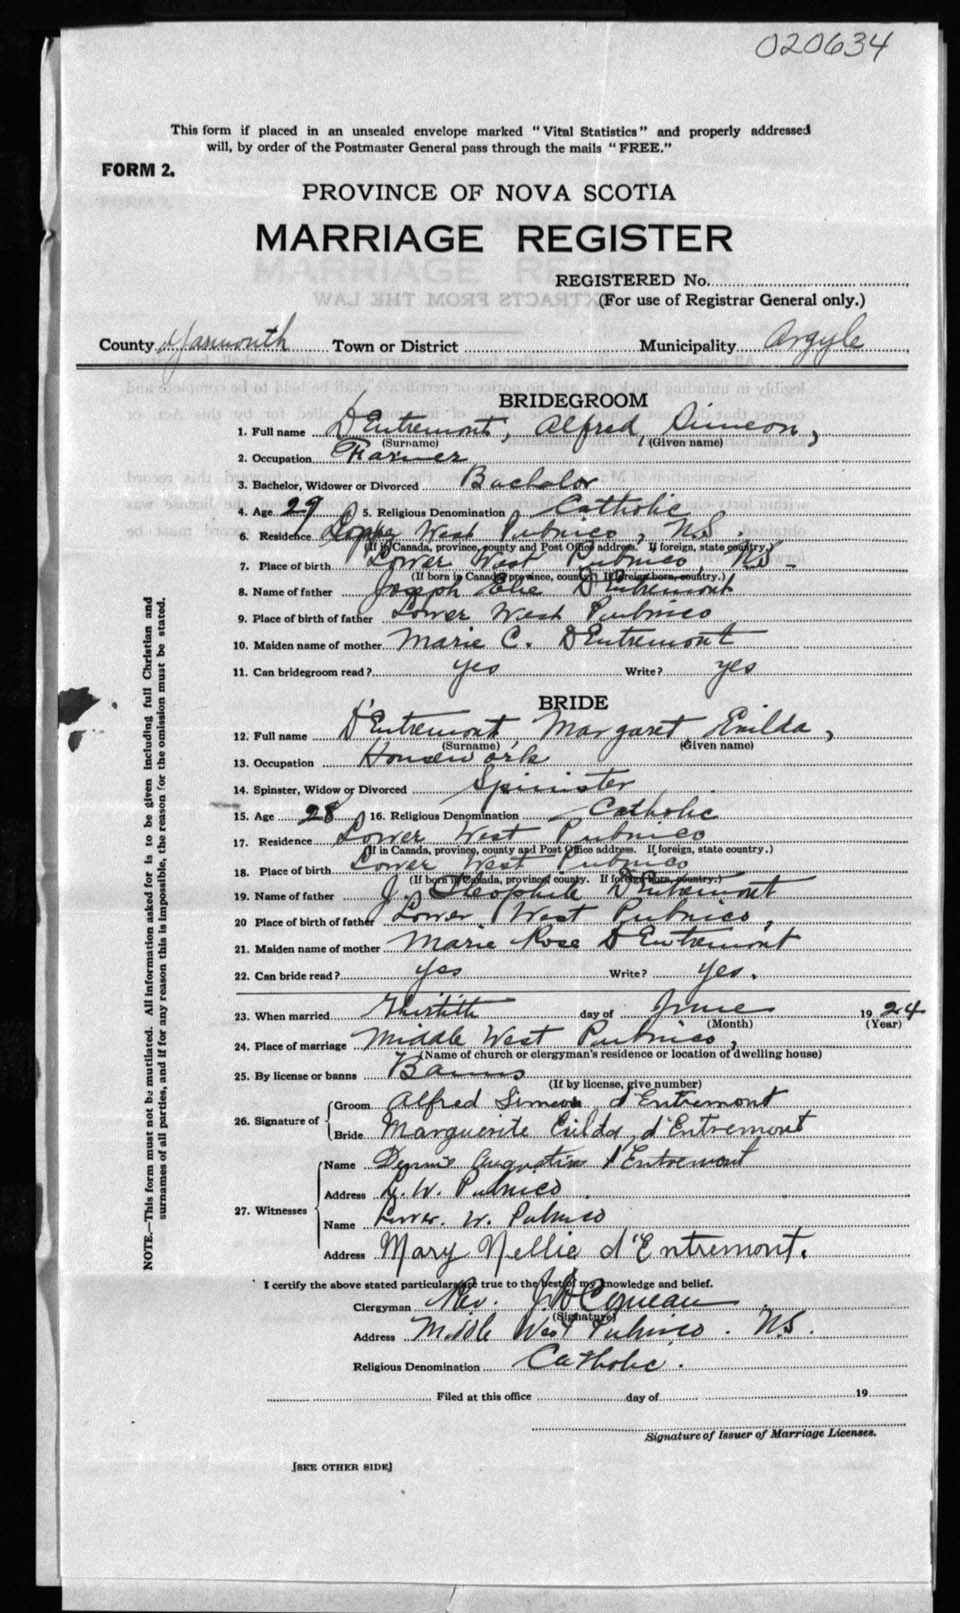 020634
This form if placed in an unsealed envelope marked "Vital Statistics" and properly addressed
will, by order of the Postmaster General pass through the mails "FREE."
FORM 2.
PROVINCE OF NOVA SCOTIA
MARRIAGE REGISTER
REGISTERED No.
(For use of Registrar General only.)
County Yarmouth Town or District Municipality Argyle
BRIDEGROOM
1. Full name D'Entremont, Alfred, Simeon,
(Surname) (Given name)
2. Occupation Farmer
3. Bachelor, Widower or Divorced Bachelor
4. Age 29 5. Religious Denomination Catholic
6. Residence West Pubnico, N.S.
(If in Canada, province, county and Post Office address. If foreign, state country.)
7. Place of birth Lower West Pubnico, N.S.
(If born in Canada, province, county. If foreign born, country.)
8. Name of father Joseph Elie D'Entremont
9. Place of birth of father Lower West Pubnico
10. Maiden name of mother Marie C. D'Entremont
11. Can bridegroom read? yes Write? yes
BRIDE
12. Full name D'Entremont, Margaret, Enilda,
(Surname) (Given name)
13. Occupation Housework
14. Spinster, Widow or Divorced Spinster
15. Age 28 16. Religious Denomination Catholic
17. Residence Lower West Pubnico
(If in Canada, province, county and Post Office address. If foreign, state country.)
18. Place of birth Lower West Pubnico
(If born in Canada, province, county. If foreign born, country.)
19. Name of father J. Theophile D'Entremont
20 Place of birth of father Lower West Pubnico,
21. Maiden name of mother Marie Rose D'Entremont
22. Can bride read? yes Write? yes.
23. When married day of June 1924
(Month) (Year)
24. Place of marriage Middle West Pubnico,
(Name of church or clergyman's residence or location of dwelling house)
25. By license or banns Banns
(If by license, give number)
26. Signature of Groom Alfred Simeon d'Entremont
Bride Marguerite d'Entremont
27. Witnesses Name Dennis Augustin d'Entremont
Address L. W. Pubnico.
Name Lower. W. Pubnico
Address Mary Nellie d'Entremont.
I certify the above stated particulars are true to the best of my knowledge and belief.
Clergyman Rev.
(Signature)
Address Middle West Pubnico. N.S.
Religious Denomination Catholic.
Filed at this office day of 19
Signature of Issuer of Marriage Licenses.
[SEE OTHER SIDE]
NOTE.—This form must not be mutilated. All information asked for is to be given including full Christian and
surnames of all parties, and if for any reason this is impossible, the reason for the omission must be stated.